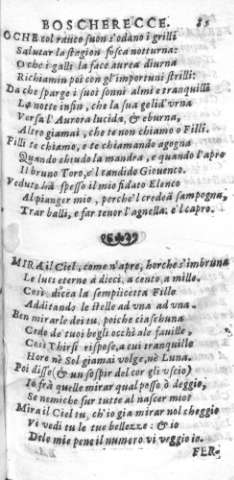 BOSCHERECCE. 85
OCHE col rauco suon s'odano i grilli
Salutar la stagion fosca notturna:
O che i galli la face aurea diurna
Richiamin poi con gl'importuni strilli:
Da che sparge i suoi sonni almi e tranquilli
La notte infin, che la sua gelid'vrna
Versa l'Aurora lucida, & eburna,
Altro giamai, che te non chiamo o Filli.
Filli te chiamo, e te chiamando agogna
Quando chiudo la mandra, e quando l'apro
Il bruno Toro, e'l candido Giouenco.
Veduto hà spesso il mio fidato Elenco
Al pianger mio, perche'l credea sampogna,
Trar balli, e far tenor l'agnella, e'l capro.
MIRA il Ciel, come n'apre, hor che s'imbruna
Le luci eterne à dieci, a cento, a mille.
Così dicea la semplicetta Fille
Additando le stelle ad vna ad vna.
Ben mirarle dei tu, poiche ciaschuna
Cede de' tuoi begli occhi ale fauille,
Così Thirsi rispose, a cui tranquillo
Hore nè Sol giamai volge, nè Luna.
Poi disse (& un sospir del cor gli vscio)
Io frà quelle mirar qual posso ò deggio,
Se nemiche fur tutte al nascer mio?
Mira il Ciel tu, ch'io gia mirar nol cheggio
Vi vedi tu le tue bellezze: & io
Dele mie pene il numero vi veggio io.
FER-